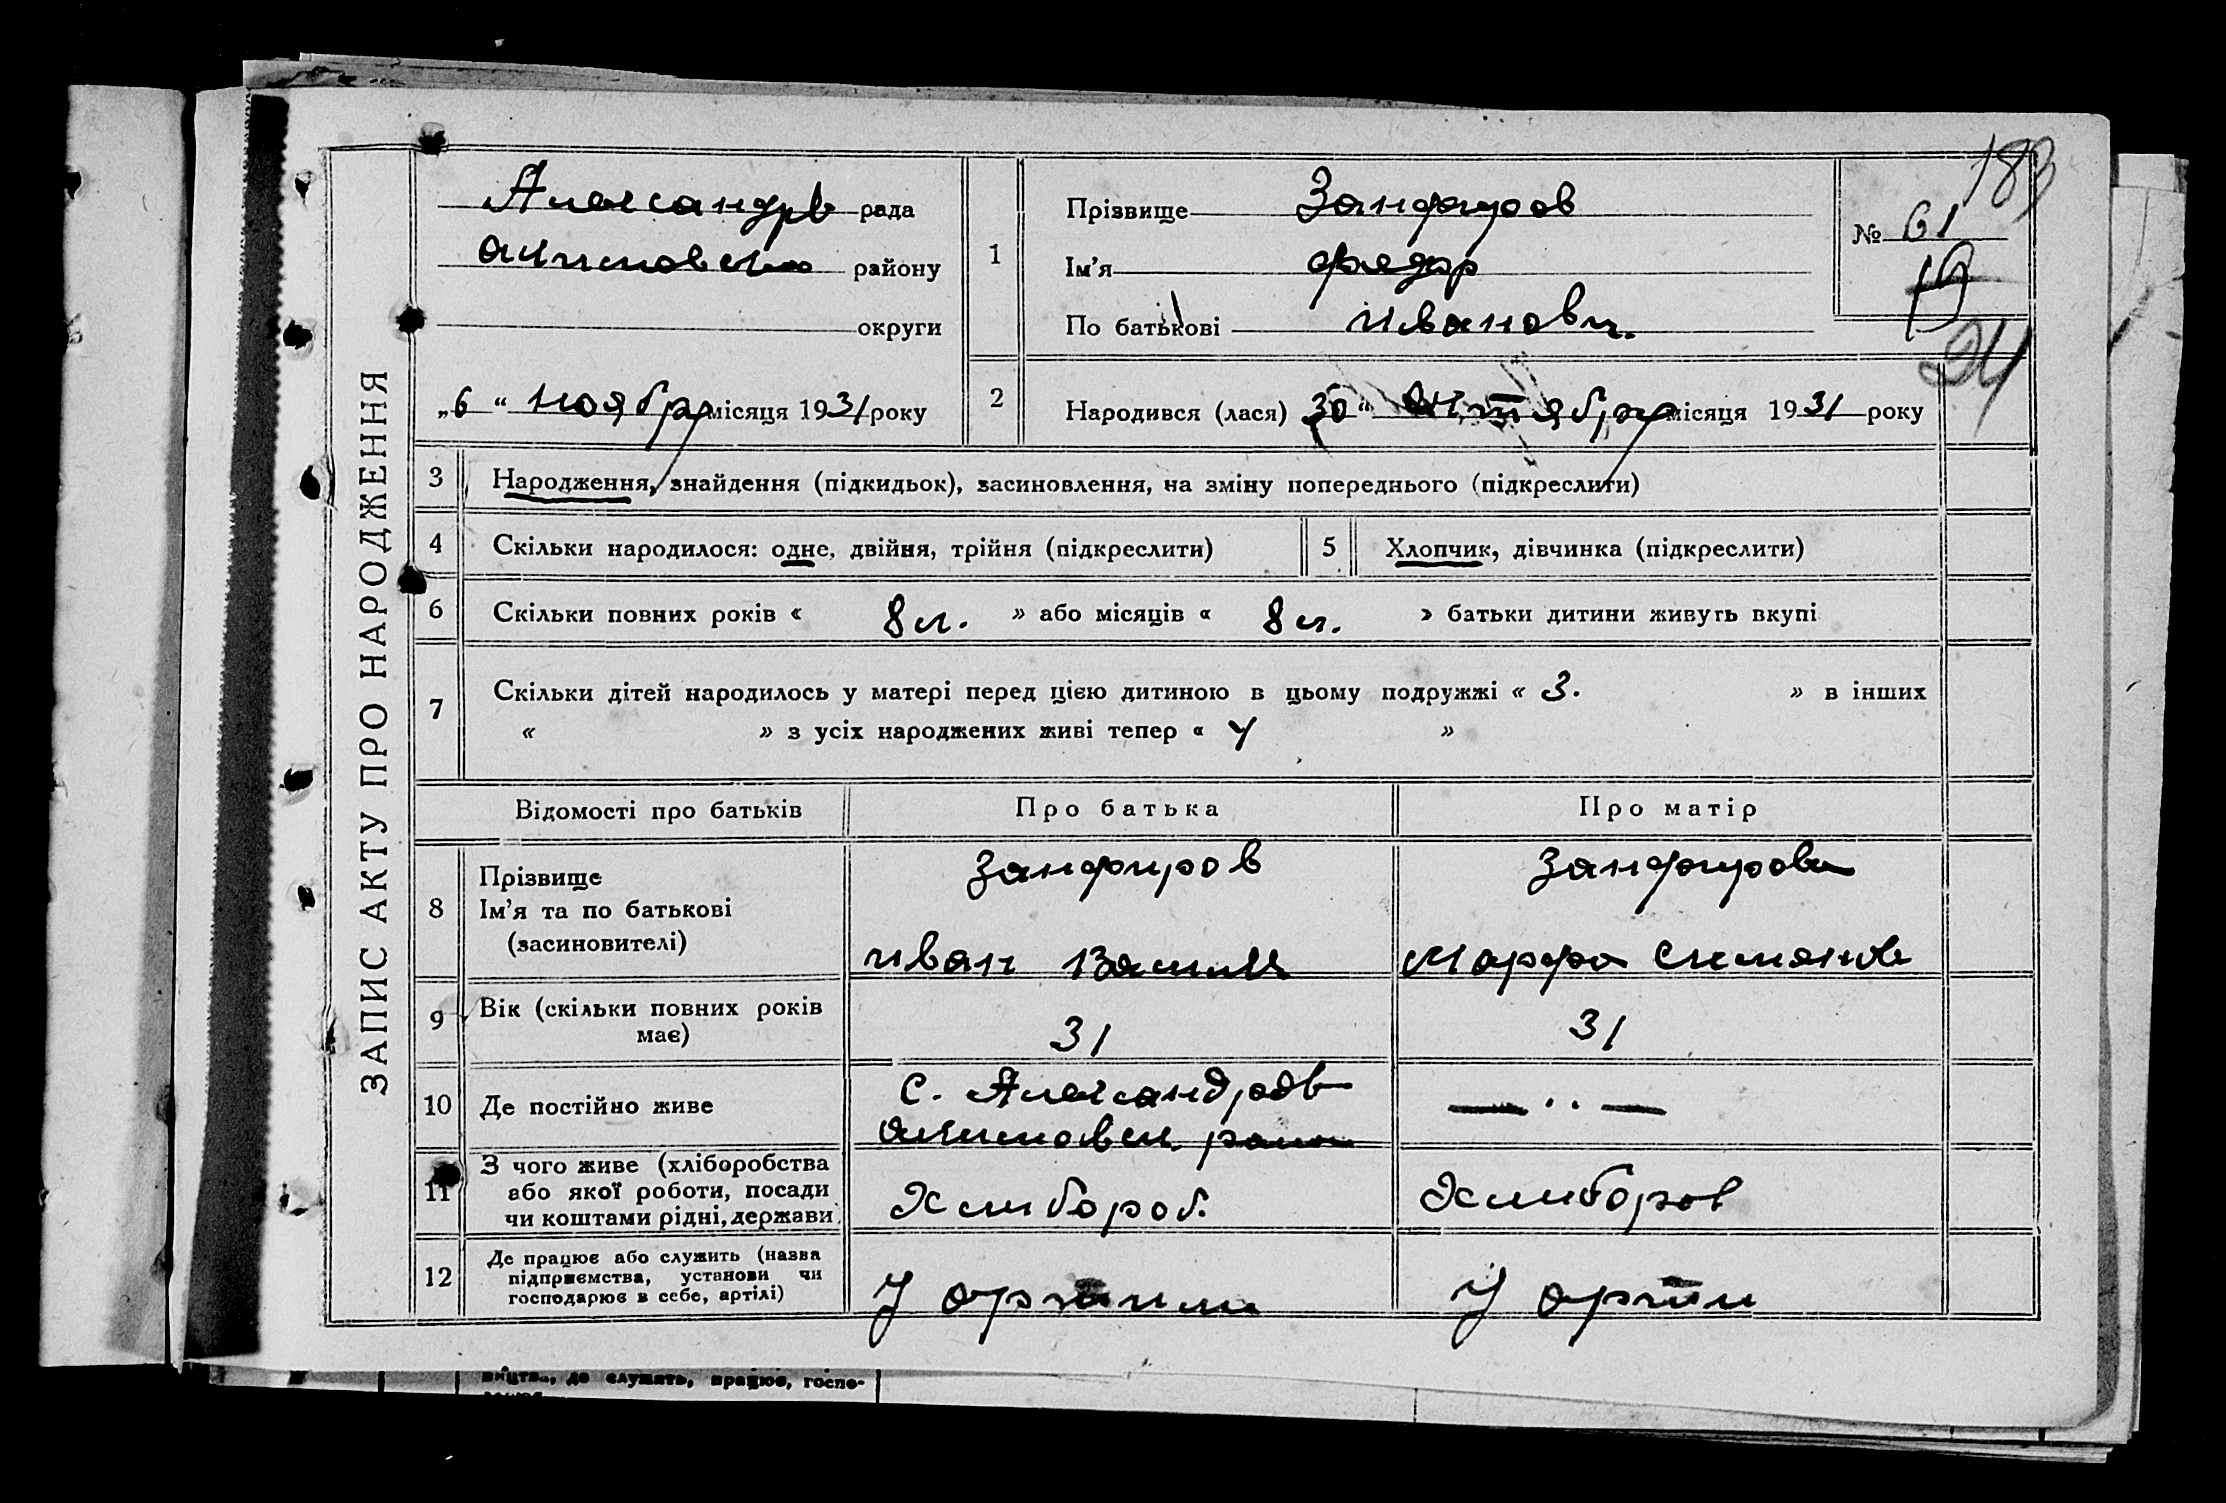 ЗАПИС АКТУ ПРО НАРОДЖЕННЯ
183
Александрв рада
Акимовского району
округи
„6“ ноября місяця 1931 року
1
Прізвище Занфиров
Ім’я Федор
По батькові Иванович.
№ 61
19
24
2
Народився (лася) 30 “ Октября місяця 1931 року
3 Народження, знайдення (підкидьок), засиновлення, на зміну попереднього (підкреслити)
4 Скільки народилося: одне, двійня, трійня (підкреслити) 5 Хлопчик, дівчинка (підкреслити)
6 Скільки повних років « 8 л. » або місяців « 8 м. » батьки дитини живуть вкупі
7 Скільки дітей народилось у матері перед цією дитиною в цьому подружжі « 3. » в інших
« » з усіх народжених живі тепер « 4 »
Відомості про батьків Про батька Про матір
8 Прізвище
Ім’я та по батькові
(засиновителі)
Занфиров
Иван Васил
Занфирова
Марфа Симянов
9 Вік (скільки повних років
має)
31 31
10 Де постійно живе
с. Александров
Акимовск. район
— ·· —
11 З чого живе (хліборобства
або якої роботи, посади
чи коштами рідні, держави
Хлибороб. Хлибороб
12 Де працює або служить (назва
підприємства, установи чи
господарює в себе, артілі)
У артили У артили
де служить, працює, госпо-